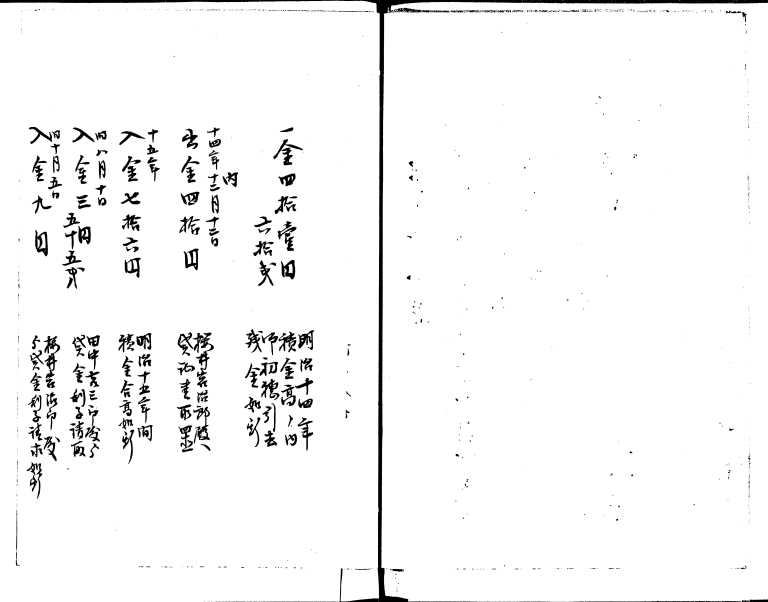 一金四拾壹円
六拾戔
明治十四年
積金高ノ内
引去
残金如斯
内
十四年十二月十二日
出金四拾円
桜井岩治郎殿へ
十五年
入金七拾六円
明治十五年間
積金合高如斯
同八月十日
入金三円
五十五戔
田中吉三郎殿ゟ
貸金利子請取
同十月五日
入金九円
桜井岩治郎殿
ゟ貸金利子請求如斯